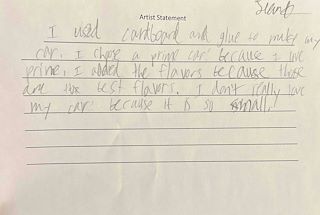 Artist Statement
I used cardboard and glue to make my
car. I chose a prime car because I love
prime, I added the flavors because those
are the best flavors. I don't really love
my car because it is so small!